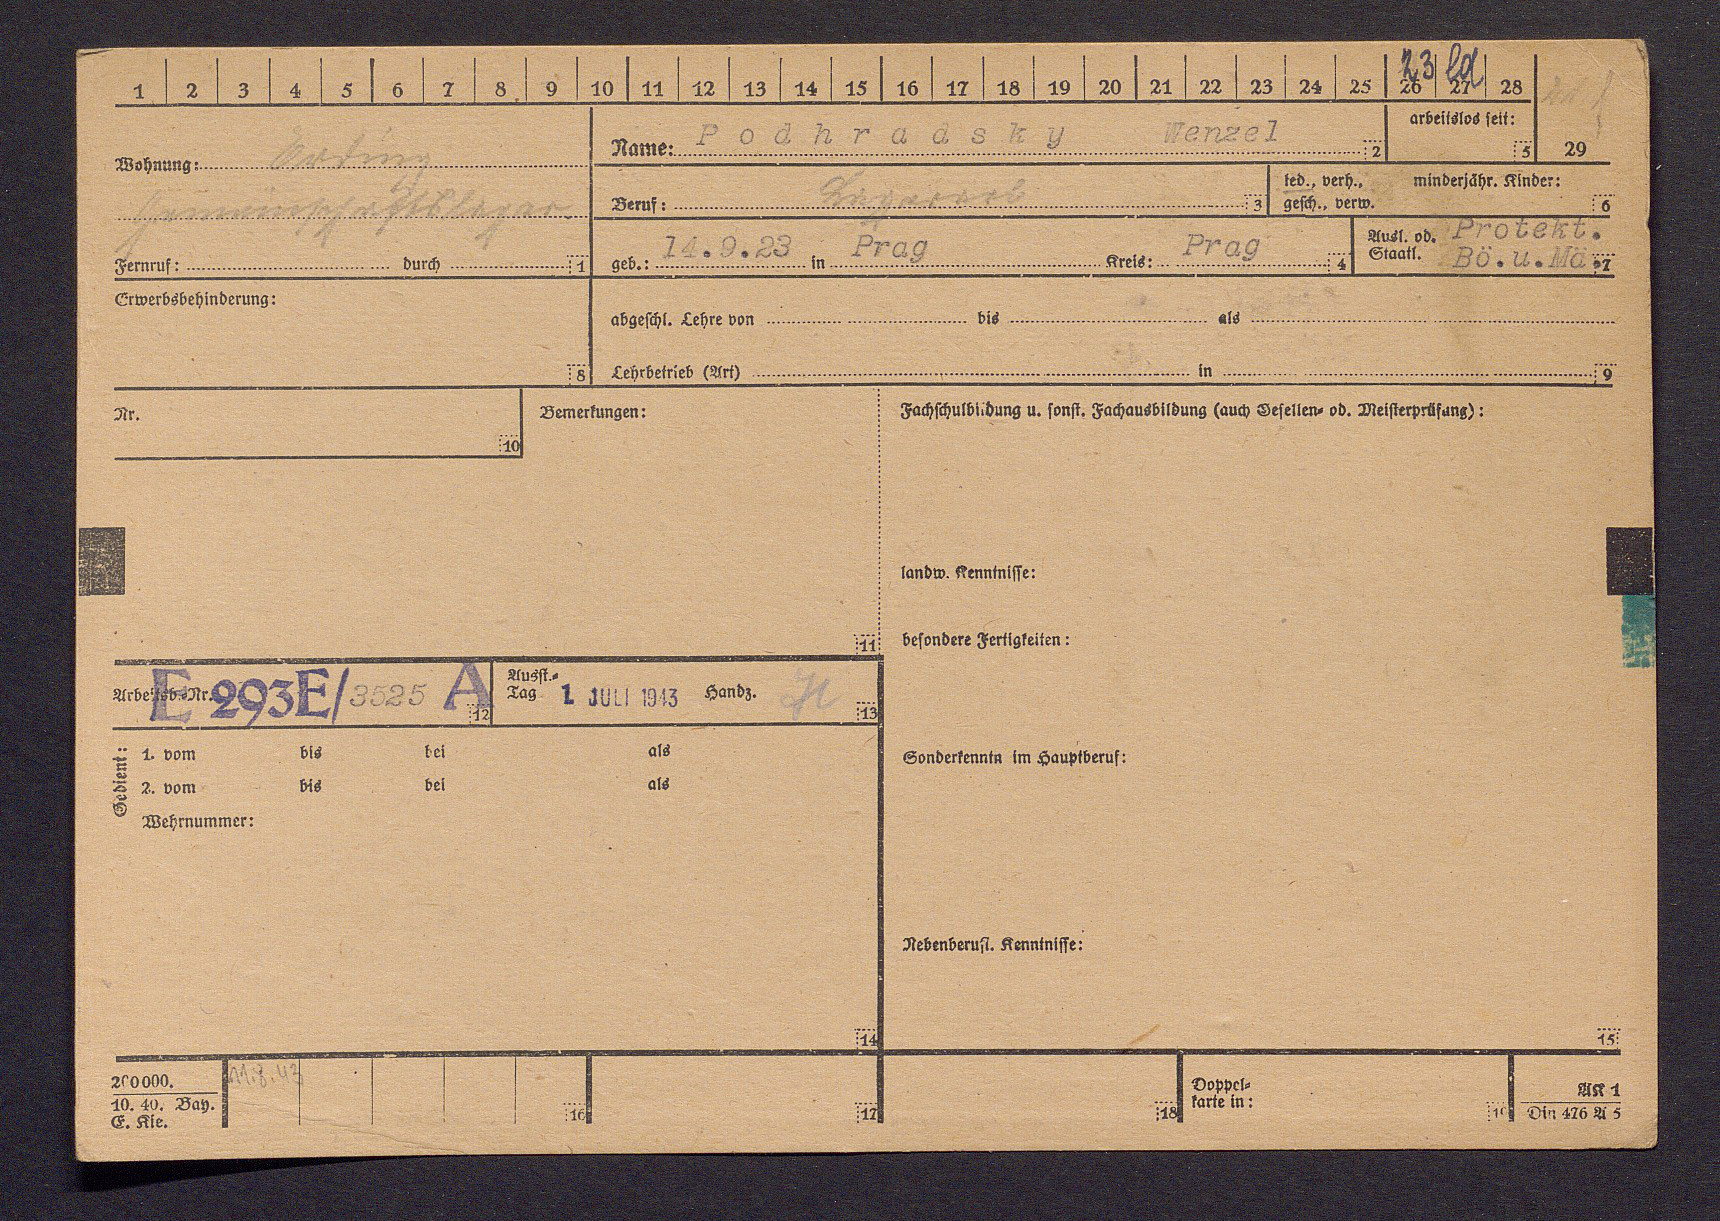 1 2 3 4 5 6 7 8 9 10 11 12 13 14 15 16 17 18 19 20 21 22 23 24 25 26 27 28
23 ld
arbeitslos seit: 5
29
Wohnung: Erding
Gemeinschaftslager
Fernruf: durch 1
Name: Podhradsky Wenzel 2
Beruf: Lagerarb 3
led., verh., minderjähr. Kinder:
gesch., verw. 6
geb.: 14.9.23 in Prag Kreis: Prag 4
Ausl. od. Staatl. Protekt. Bö.u.Mä. 7
Erwerbsbehinderung:
8
abgeschl. Lehre von bis als
Lehrbetrieb (Art) in 9
Nr.
10
Bemerkungen:
11
Fachschulbildung u. sonst. Fachausbildung (auch Gesellen- od. Meisterprüfung):
landw. Kenntnisse:
besondere Fertigkeiten:
Arbeitsb.-Nr. E 293E/3525 A 12
Ausst.-Tag 1. JULI 1943 Handz. 13
Gedient:
1. vom bis bei als
2. vom bis bei als
Wehrnummer:
14
Sonderkenntn im Hauptberuf:
Nebenberufl. Kenntnisse:
15
200000.
10. 40. Bay.
E. Kie.
11.8.43
16
17
18
Doppel-
karte in:
19
AK 1
Din 476 A 5